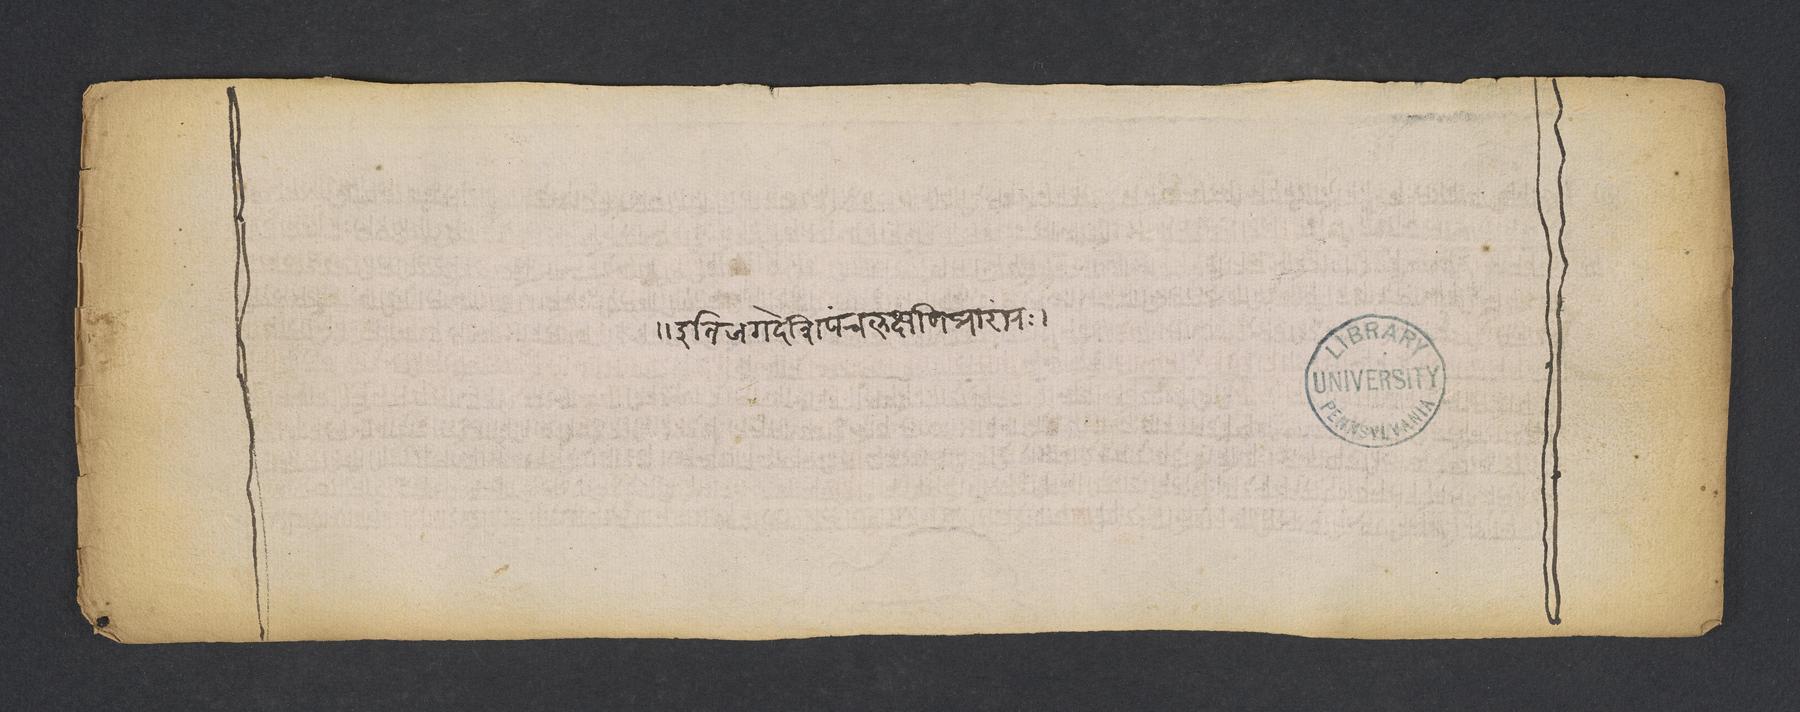 ॥इतिजगदेशिपंचलक्षणिप्रारंभः।
LIBRARY
UNIVERSITY
PENNSYLVANIA